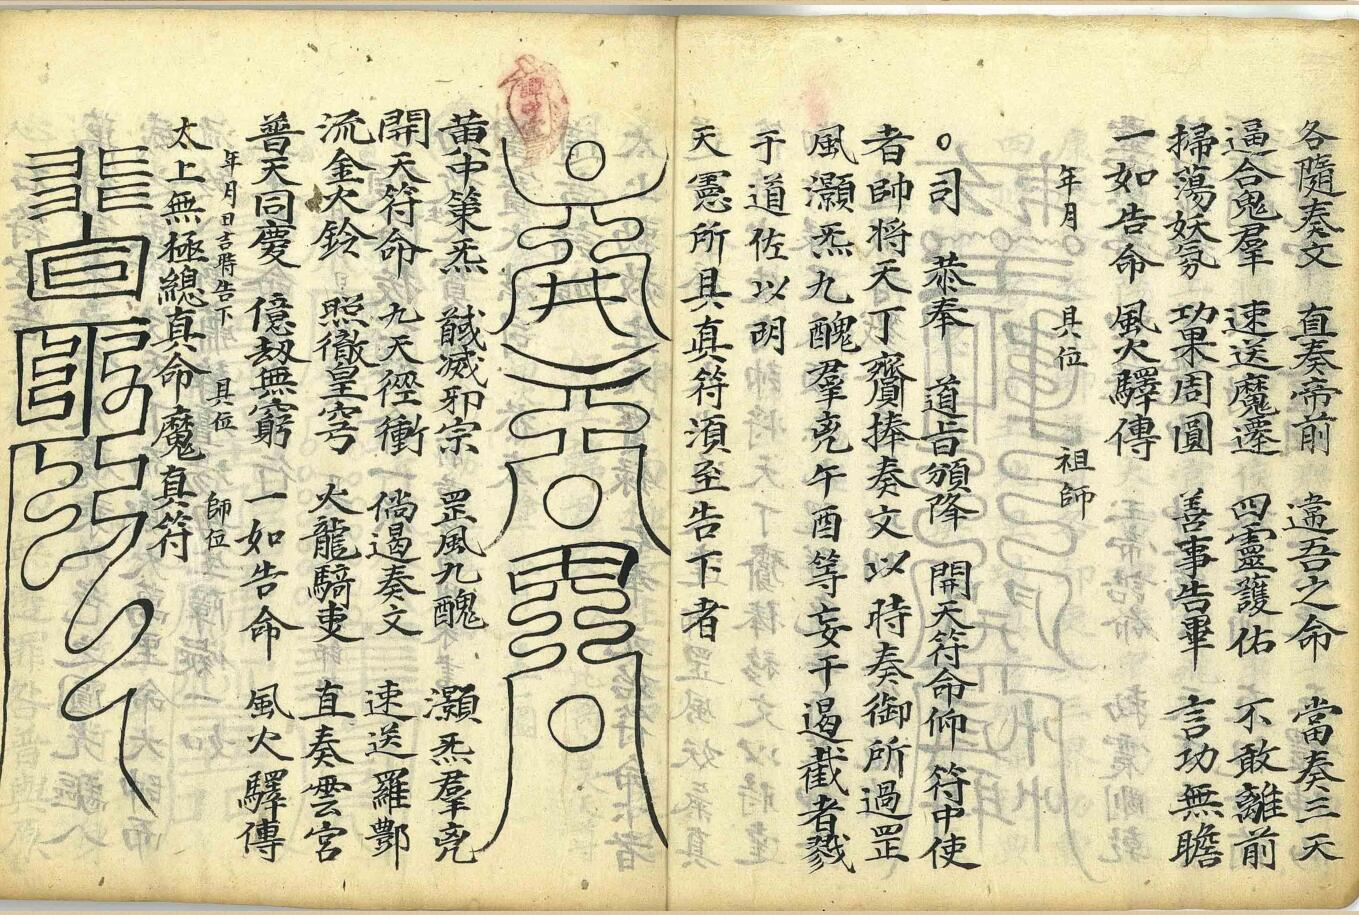 各隨奏文 直奏帝前 違吾之命 當奏三天
逼合鬼羣 速送魔遷 四靈護佑 不敢離前
掃蕩妖氛 功果周圓 善事告畢 言功無瞻
一如告命 風火驛傳
年月 具位 祖師
○司 恭奉 道旨頒降 開天符命仰 符中使
者帥將天丁齎捧奏文以時奏御所過罡
風灝炁九醜羣兇午酉等妄干遏截者戮
于道佐以明
天憲所具真符須至告下者
黃中策炁 馘滅邪宗 罡風九醜 灝炁羣兇
開天符命 九天徑衝 倘遏奏文 速送羅酆
流金火鈴 照徹皇穹 火龍騎吏 直奏雲宮
普天同慶 億劫無窮 一如告命 風火驛傳
年月日吉時告下 具位 師位
太上無極總真命魔真符